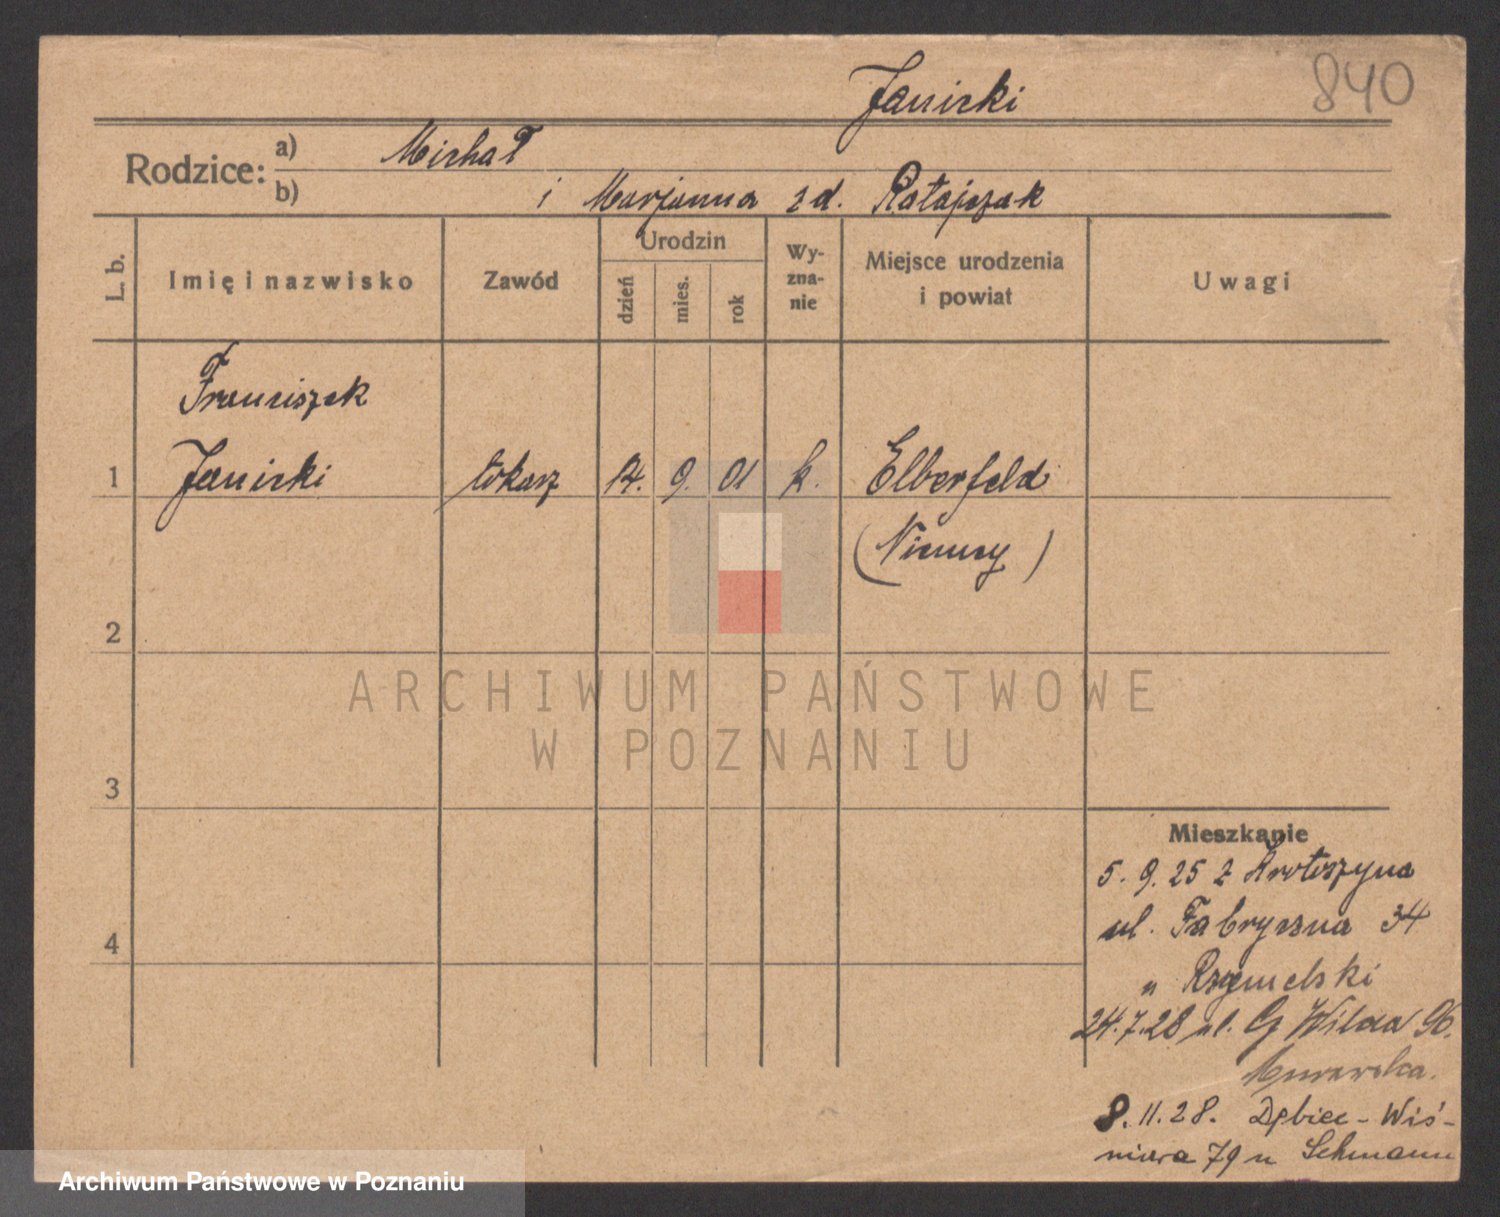 Janicki
840
Rodzice:
a) Michał
b) i Marjanna z d. Ratajczak
L. b.
Imię i nazwisko
Zawód
Urodzin
dzień
mies.
rok
Wy-
zna-
nie
Miejsce urodzenia
i powiat
Uwagi
Franciszek
1 Janicki tokarz 14. 9. 01 k. Elberfeld
(Niemcy)
2
3
4
Mieszkanie
5. 9. 25 z Krotoszyna
ul. Fabryczna 34
u
24.7.28 ul. G Wilda 96.
Murawska.
8. 11. 28. Dębiec - Wiś-
niowa 79 u Lehmann
ARCHIWUM PAŃSTWOWE
W POZNANIU
Archiwum Państwowe w Poznaniu